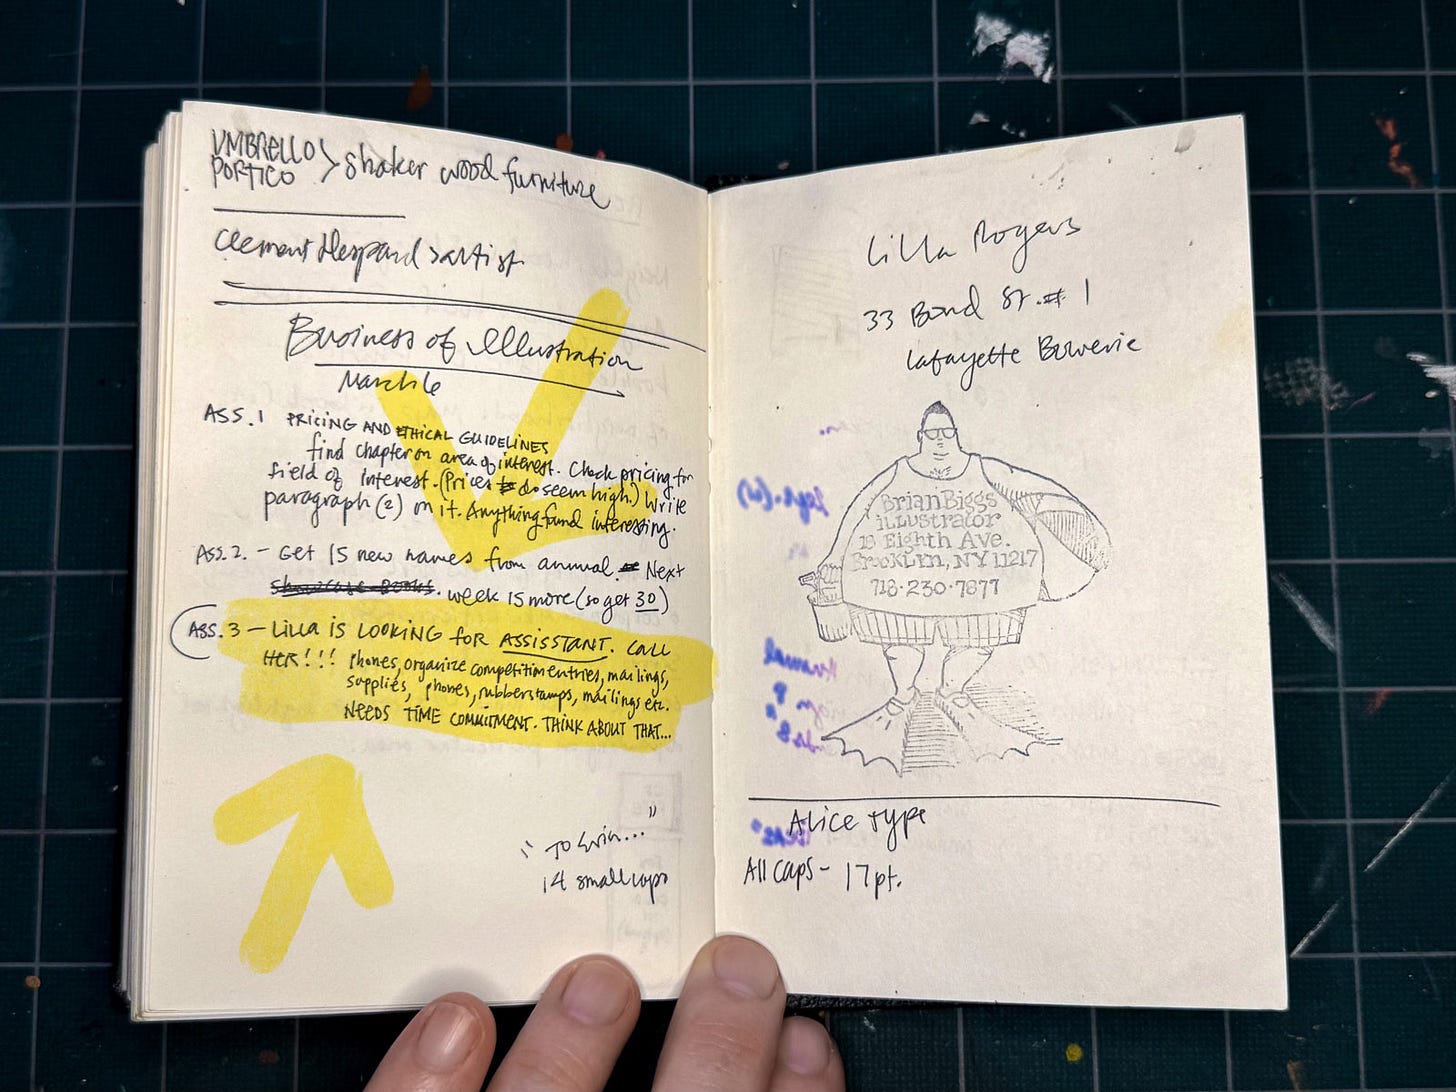 UMBRELLO > shaker wood furniture
PORTICO
Clement Hespard > artist
Business of Illustration
March 6
ASS. 1 PRICING AND ETHICAL GUIDELINES
find chapter on area of interest. Check pricing for
field of interest. (Prices do seem high.) Write
paragraph (2) on it. Anything found interesting.
ASS. 2. - Get 15 new names from annual. Next
Showcase Books. week 15 more (so get 30)
ASS. 3 - LILLA IS LOOKING FOR ASSISTANT. CALL
HER!!! Phones, organize competition entries, mailings,
supplies, phones, rubberstamps, mailings etc.
NEEDS TIME COMMITMENT. THINK ABOUT THAT...
"To Erin..."
14 small caps
Lilla Rogers
33 Bond St. #1
Lafayette Bowerie
Brian Biggs
illustrator
Eighth Ave.
Brooklyn, NY 11217
718·230·7877
Alice type
All caps - 17pt.